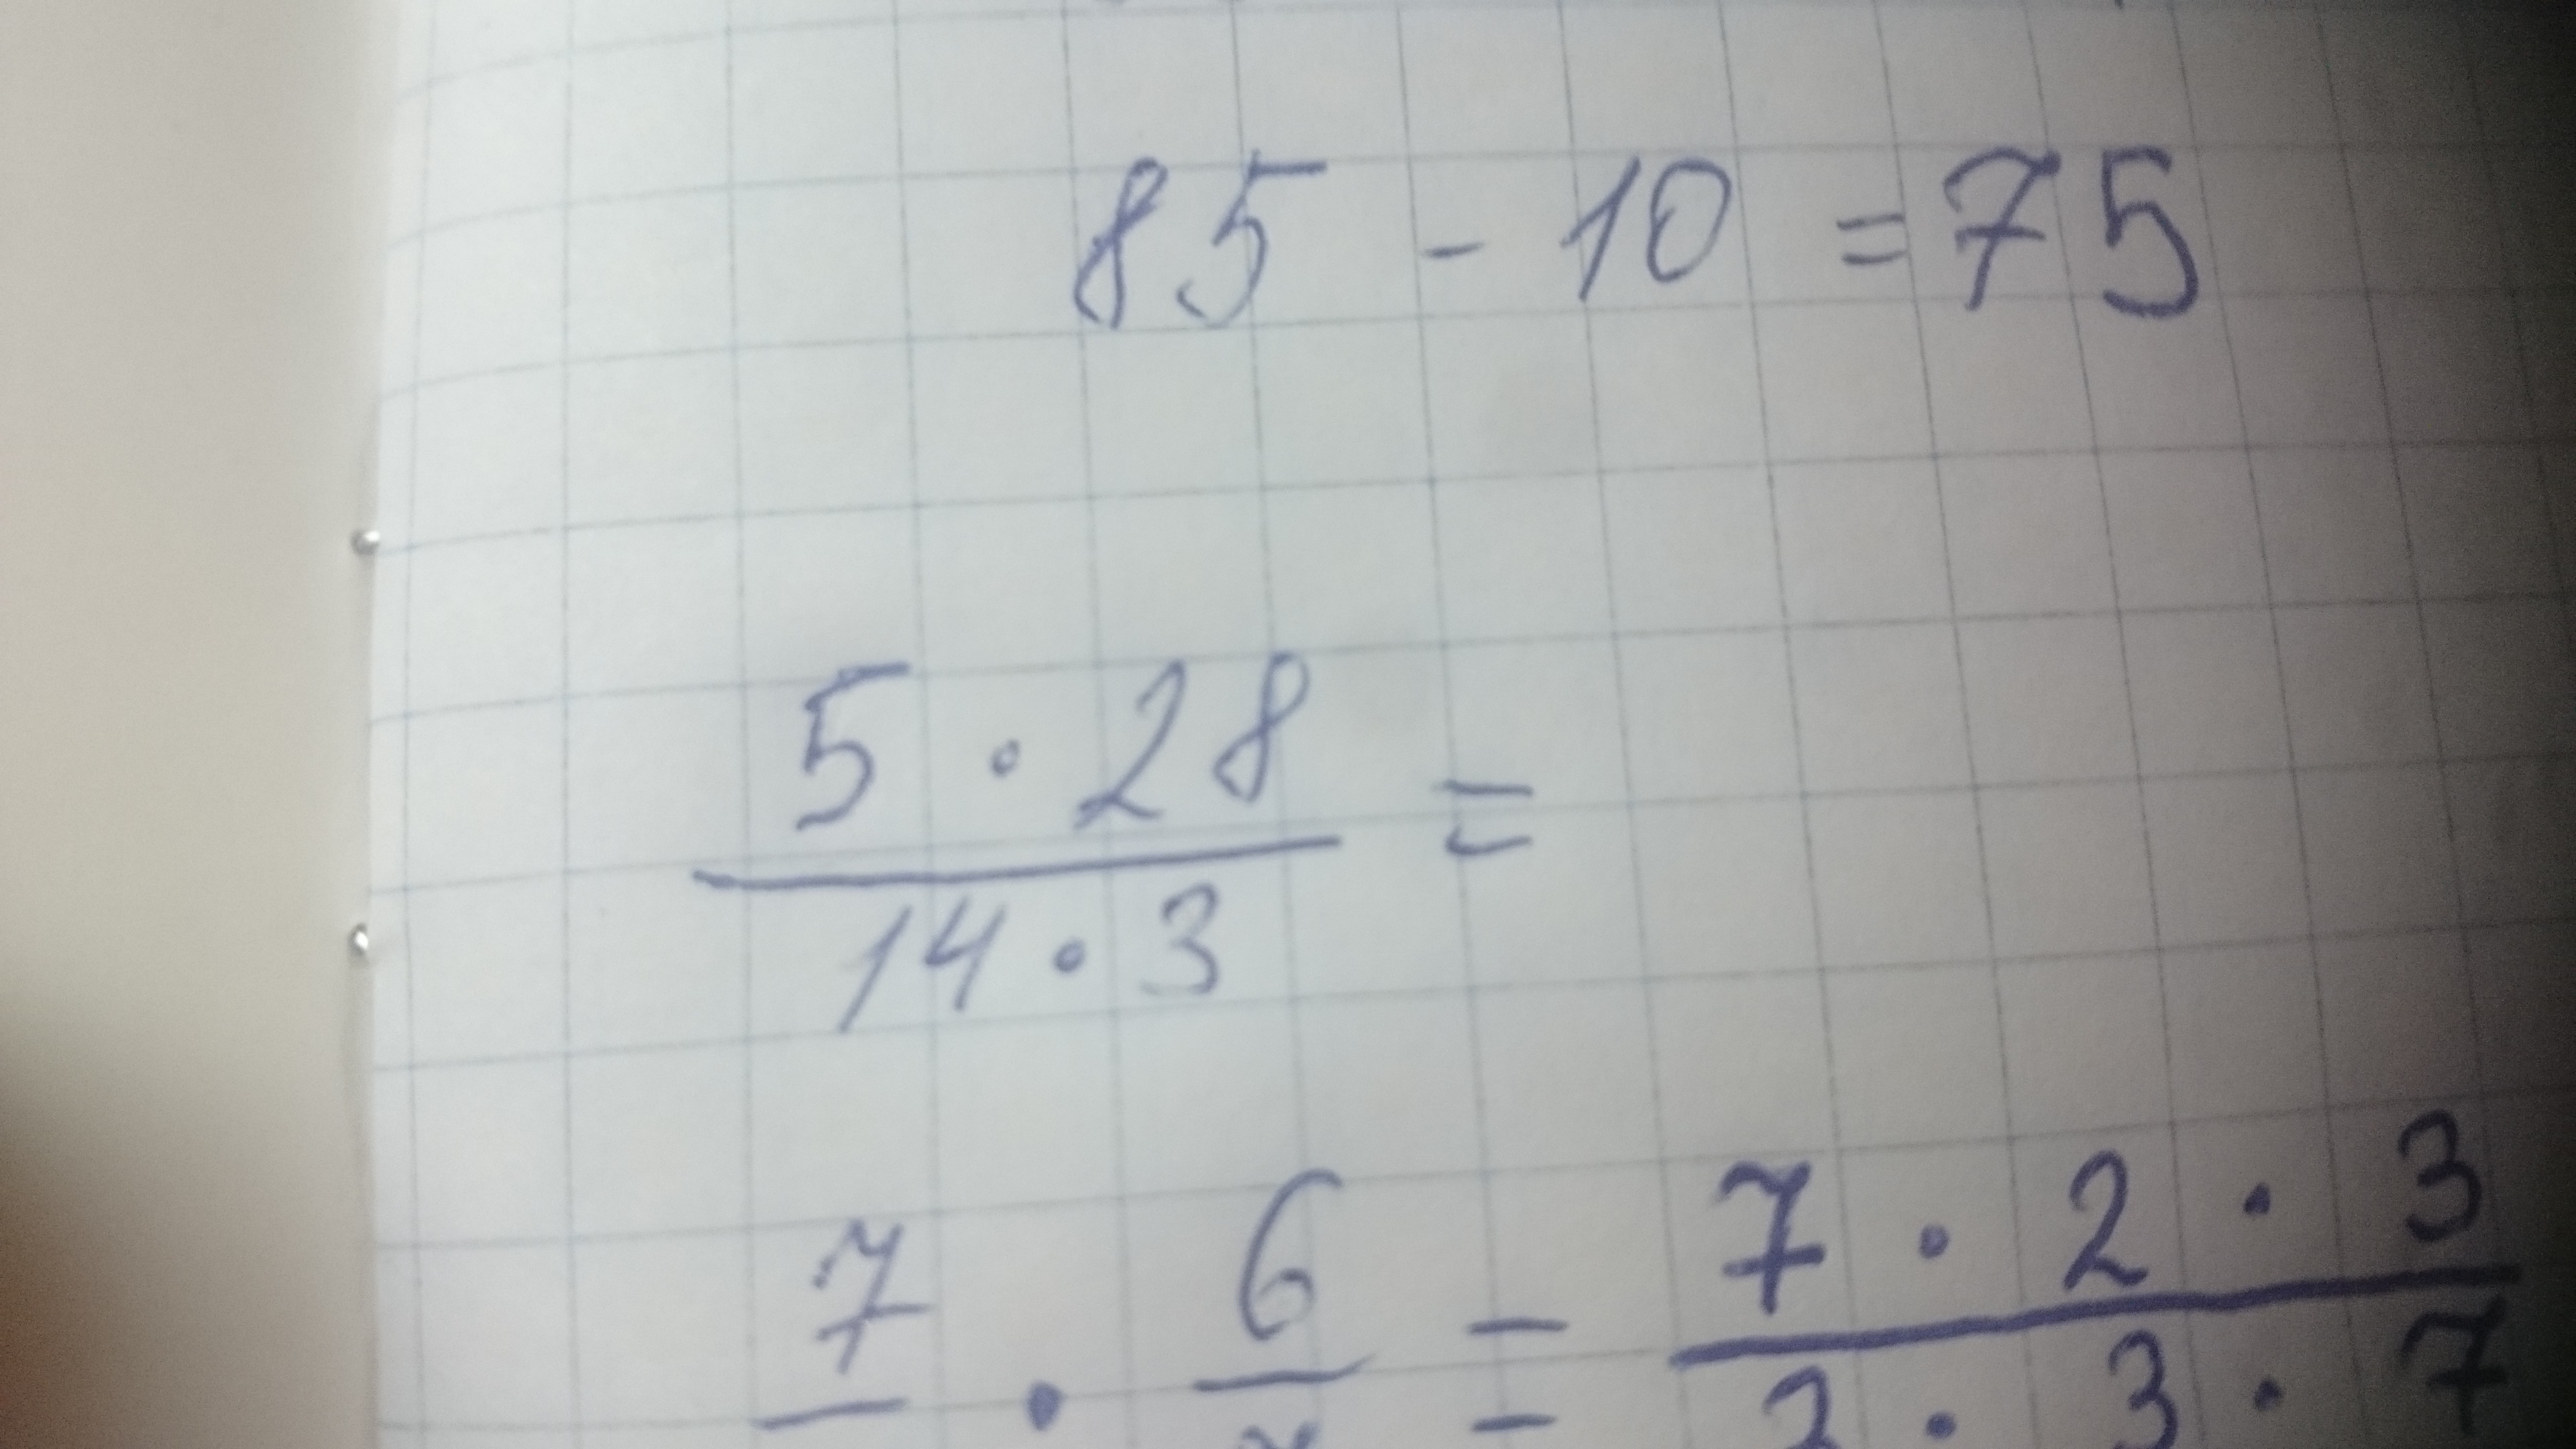 85 - 10 = 75
5 · 28
=
14 · 3
7 · 6 = 7 · 2 · 3
3 · 7